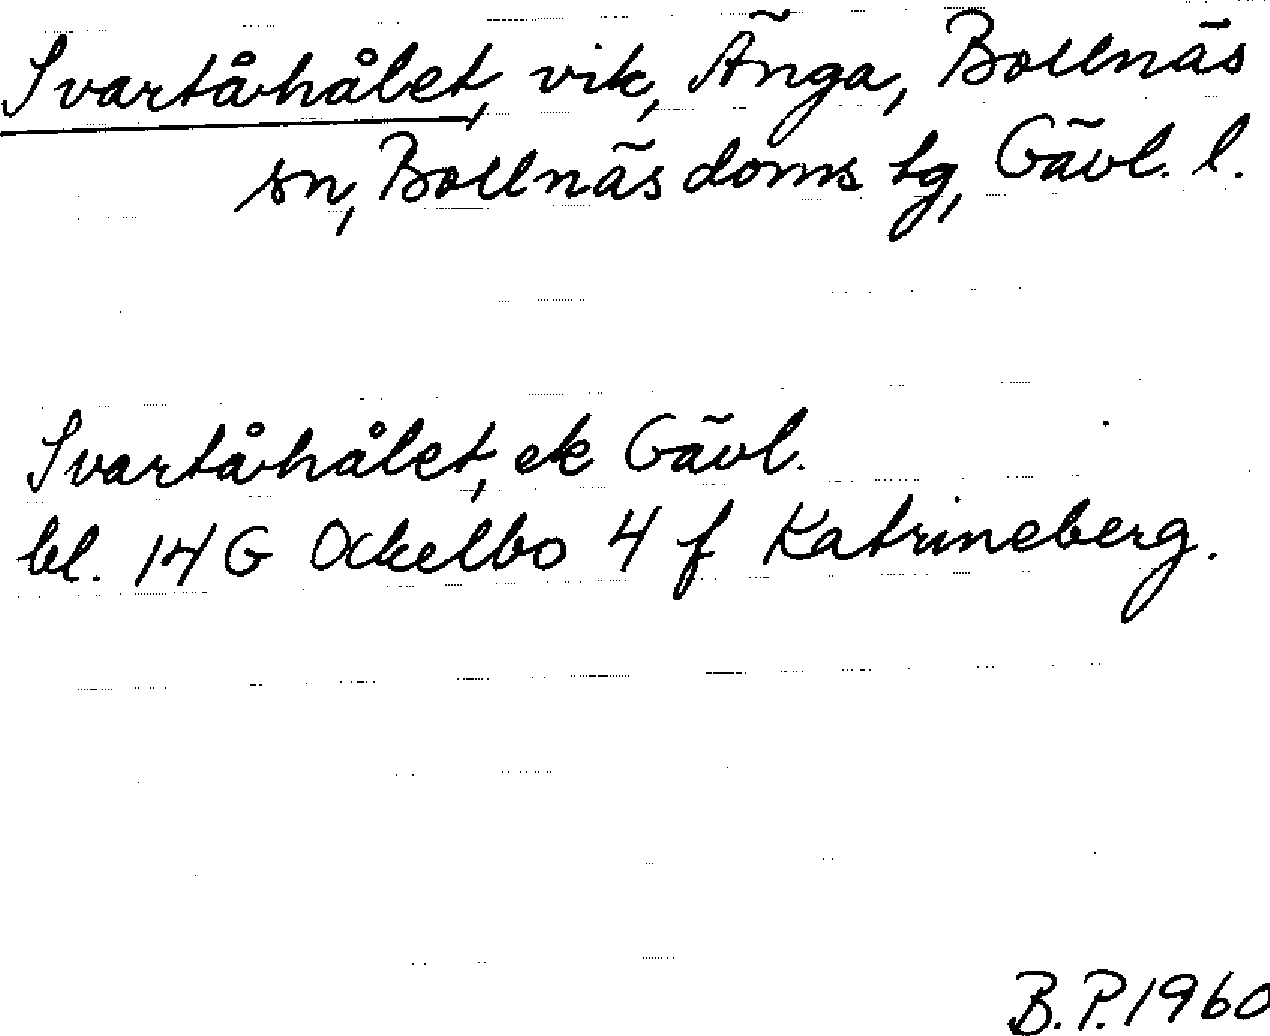 Svartåhålet, vik, Änga, Bollnäs
sn, Bollnäs doms tg, Gävl. l.
Svartåhålet, ek Gävl.
bl. 14 G Ockelbo 4 f Katrineberg.
B.P. 1960